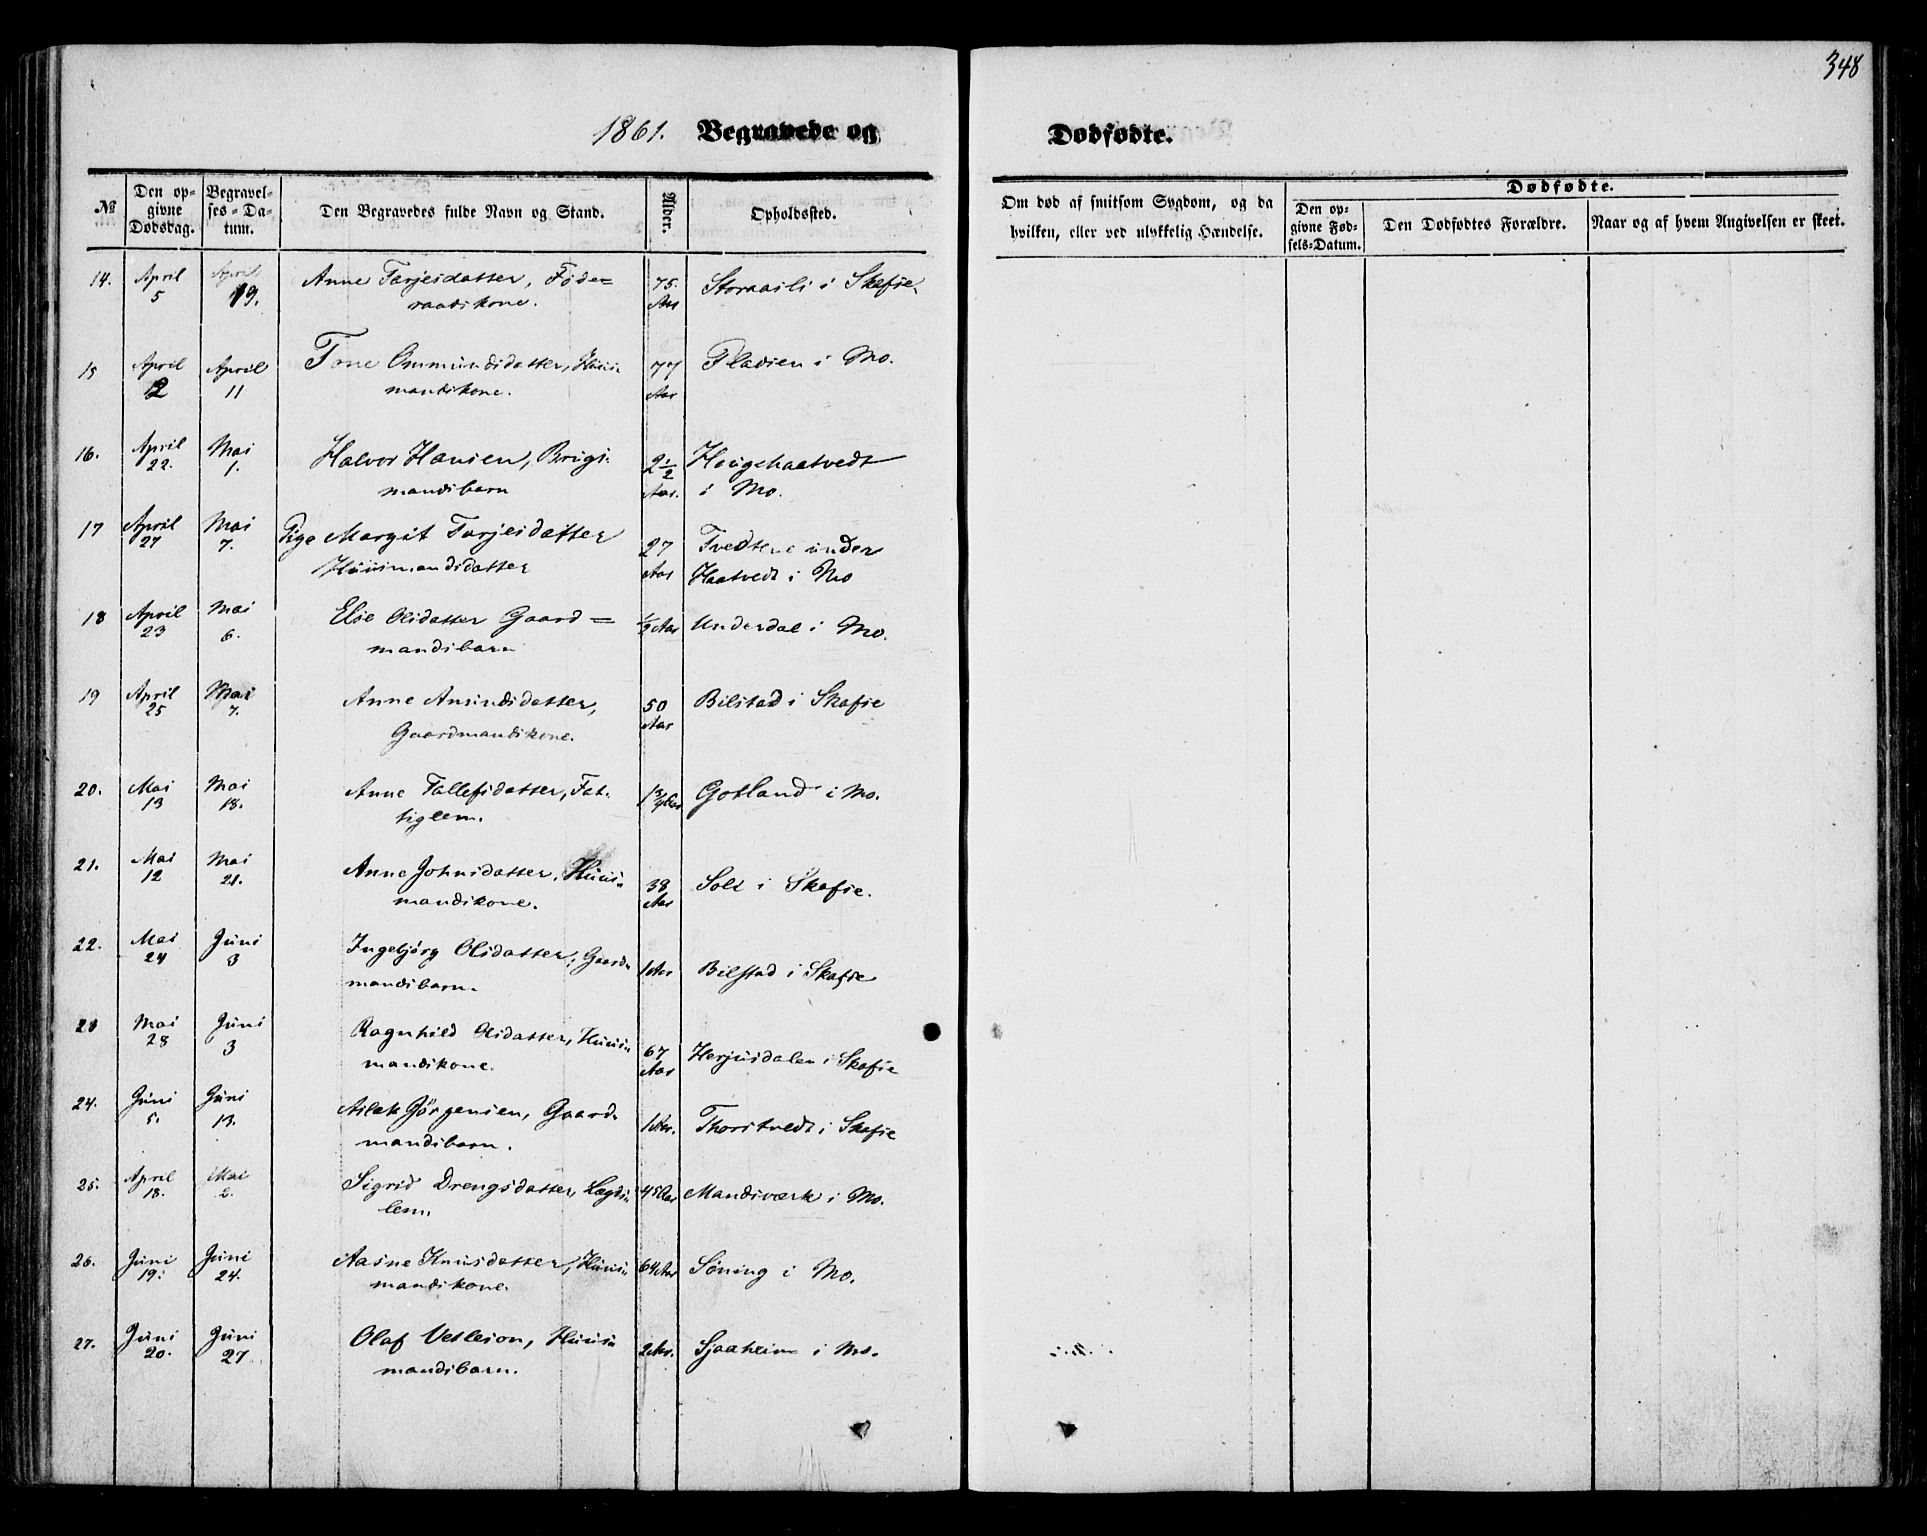 348
1861. Begravede og Dødfødte.
№ Den opgivne Dødsdag. Begravelses-Datum. Den Begravedes fulde Navn og Stand. Alder. Opholdssted. Om død af smitsom Sygdom, og da hvilken, eller ved ulykkelig Hændelse. Dødfødte. Den opgivne Fødsels-Datum. Den Dødfødtes Forældre. Naar og af hvem Angivelsen er skeet.
14. April 5 April 19. Anne Tarjesdatter, Føde=
raadskone. 75. Aar Storaasli i Skafse.
15 April 2 April 11 Tone Ommundsdatter, Huus-
mandskone. 77 Aar Pladsen i Mo.
16. April 22. Mai 1. Halvor Hansen, Brugs-
mandsbarn 2½ Aar. Hougehaatvedt
i Mo.
17 April 27 Mai 7. Pige Margit Tarjesdatter
Huusmandsdatter 27 Aar Tvedtene under
Haatvedt i Mo
18 April 23 Mai 6. Else Olsdatter Gaard=
mandsbarn ½ Aar Underdal i Mo.
19 April 25 Mai 7. Anne Aasundsdatter,
Gaardmandskone. 50 Aar Bilstad i Skafse
20. Mai 13 Mai 18. Anne Tallefsdatter, Fat-
tiglem. 1¾ Aar Gotland i Mo.
21. Mai 12 Mai 21. Anne Johnsdatter, Huus-
mandskone. 38 Aar Soli i Skafse.
22. Mai 24 Juni 3 Ingebjørg Olsdatter, Gaard-
mandsbarn. 1 Aar Bilstad i Skafse
23 Mai 28 Juni 3 Ragnhild Olsdatter, Huus-
mandskone. 67 Aar Herjusdalen i Skafse
24. Juni 5. Juni 13. Aslak Jørgensen, Gaard-
mandsbarn. 1 Aar. Thorstvedt i Skafse
25. April 18. Mai 2. Sigrid Drengsdatter, Lægds-
lem. 45 Aar Mandsværk i Mo.
26. Juni 19. Juni 24. Aasne Knusdatter, Huus-
mandskone. 64 Aar Søning i Mo.
27. Juni 20. Juni 27 Olaf Vetleson, Huus-
mandsbarn. 2 Aar. Sjaaheim i Mo.